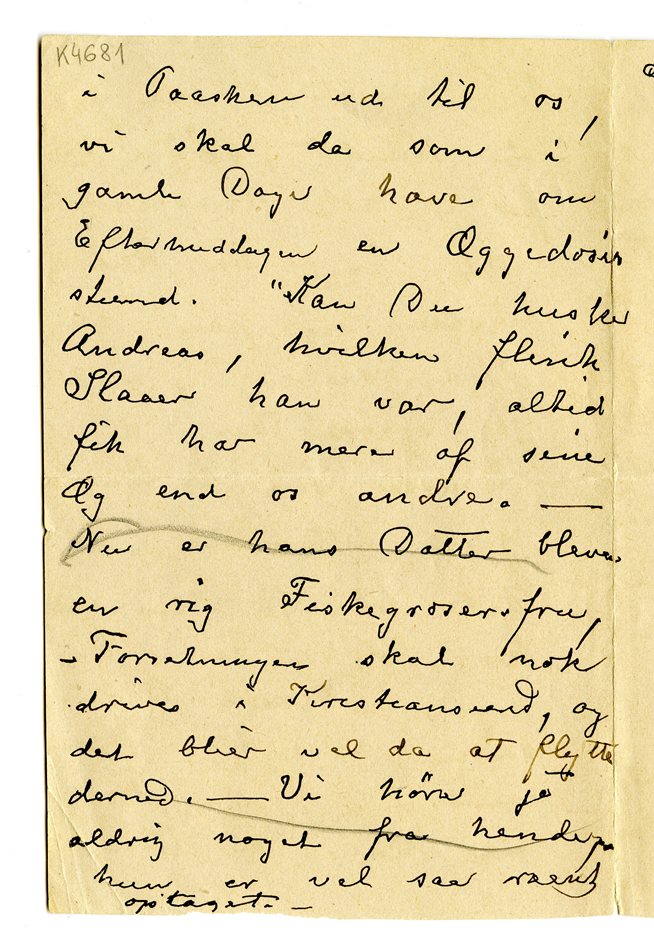 K4681
i Paasken ud til os,
vi skal da som i
gamle Dage have om
Eftermiddagen en Æggedosis
stund. "Kan Du huske
Andreas, hvilken flink
Slaaer han var, altid
fik han mere af sine
Æg end os andre. —
Nu er hans Datter bleven
en rig Fiskegrosserfru,
- Forretningen skal nok
drives i Kristianssand, og
det blier vel da at flytte
derned. — Vi hører jo
aldrig noget fra hende,
hun er vel saa
optaget. -